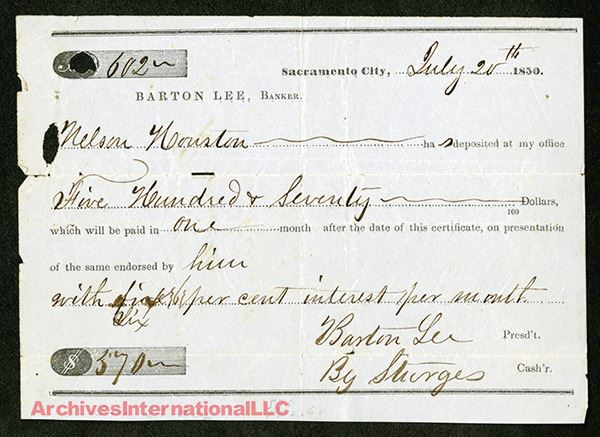 No 602
Sacramento City, July 20th 1850.
BARTON LEE, BANKER.
Nelson Houston has deposited at my office
Five Hundred & Seventy /100 Dollars,
which will be paid in one month after the date of this certificate, on presentation
of the same endorsed by him
with (6) per cent interest per month
Six
Barton Lee Presd't.
$ 570 By Sturges Cash'r.
ArchivesInternationalLLC